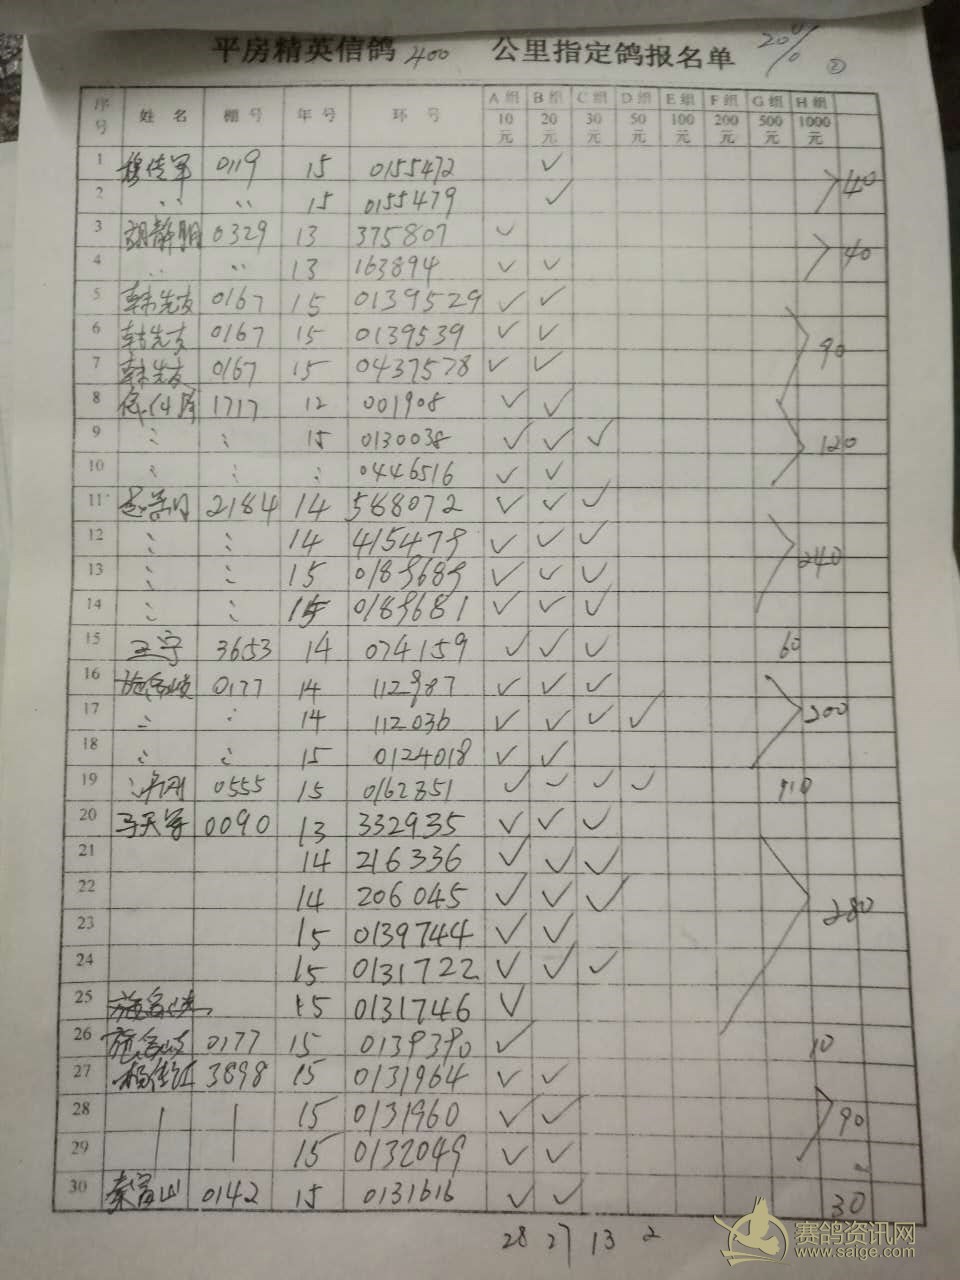 平房精英信鸽400 公里指定鸽报名单 20% ②
序号 姓 名 棚 号 年 号 环 号 A 组 10元 B 组 20元 C 组 30元 D 组 50元 E 组 100元 F 组 200元 G 组 500元 H 组 1000元
1 穆传军 0119 15 0155472 ✓
2 〃 〃 15 0155479 ✓ 40
3 胡静明 0329 13 375807 ✓
4 〃 〃 13 163894 ✓ ✓ 40
5 韩先友 0167 15 0139529 ✓ ✓
6 韩先友 0167 15 0139539 ✓ ✓ 90
7 韩先友 0167 15 0437578 ✓ ✓
8 1717 12 001908 ✓ ✓
9 〃 〃 15 0130038 ✓ ✓ ✓ 120
10 〃 〃 〃 0446516 ✓ ✓
11 2184 14 588072 ✓ ✓ ✓
12 〃 〃 14 415479 ✓ ✓ ✓ 240
13 〃 〃 15 0189689 ✓ ✓ ✓
14 〃 〃 15 0189681 ✓ ✓ ✓
15 王宇 3653 14 074159 ✓ ✓ ✓ 60
16 0177 14 112987 ✓ ✓ ✓
17 〃 〃 14 112036 ✓ ✓ ✓ ✓ 200
18 〃 〃 15 0124018 ✓ ✓
19 0555 15 0162351 ✓ ✓ ✓ ✓ 110
20 马天宇 0090 13 332935 ✓ ✓ ✓
21 14 216336 ✓ ✓ ✓
22 14 206045 ✓ ✓ ✓ 280
23 15 0139744 ✓ ✓
24 15 0131722 ✓ ✓ ✓
25 15 0131746 ✓
26 0177 15 0139390 ✓ 10
27 3898 15 0131964 ✓ ✓
28 15 0131960 ✓ ✓ 90
29 15 0132049 ✓ ✓
30 秦富山 0142 15 0131616 ✓ ✓ 30
28 27 13 2
赛鸽资讯网
www.saige.com